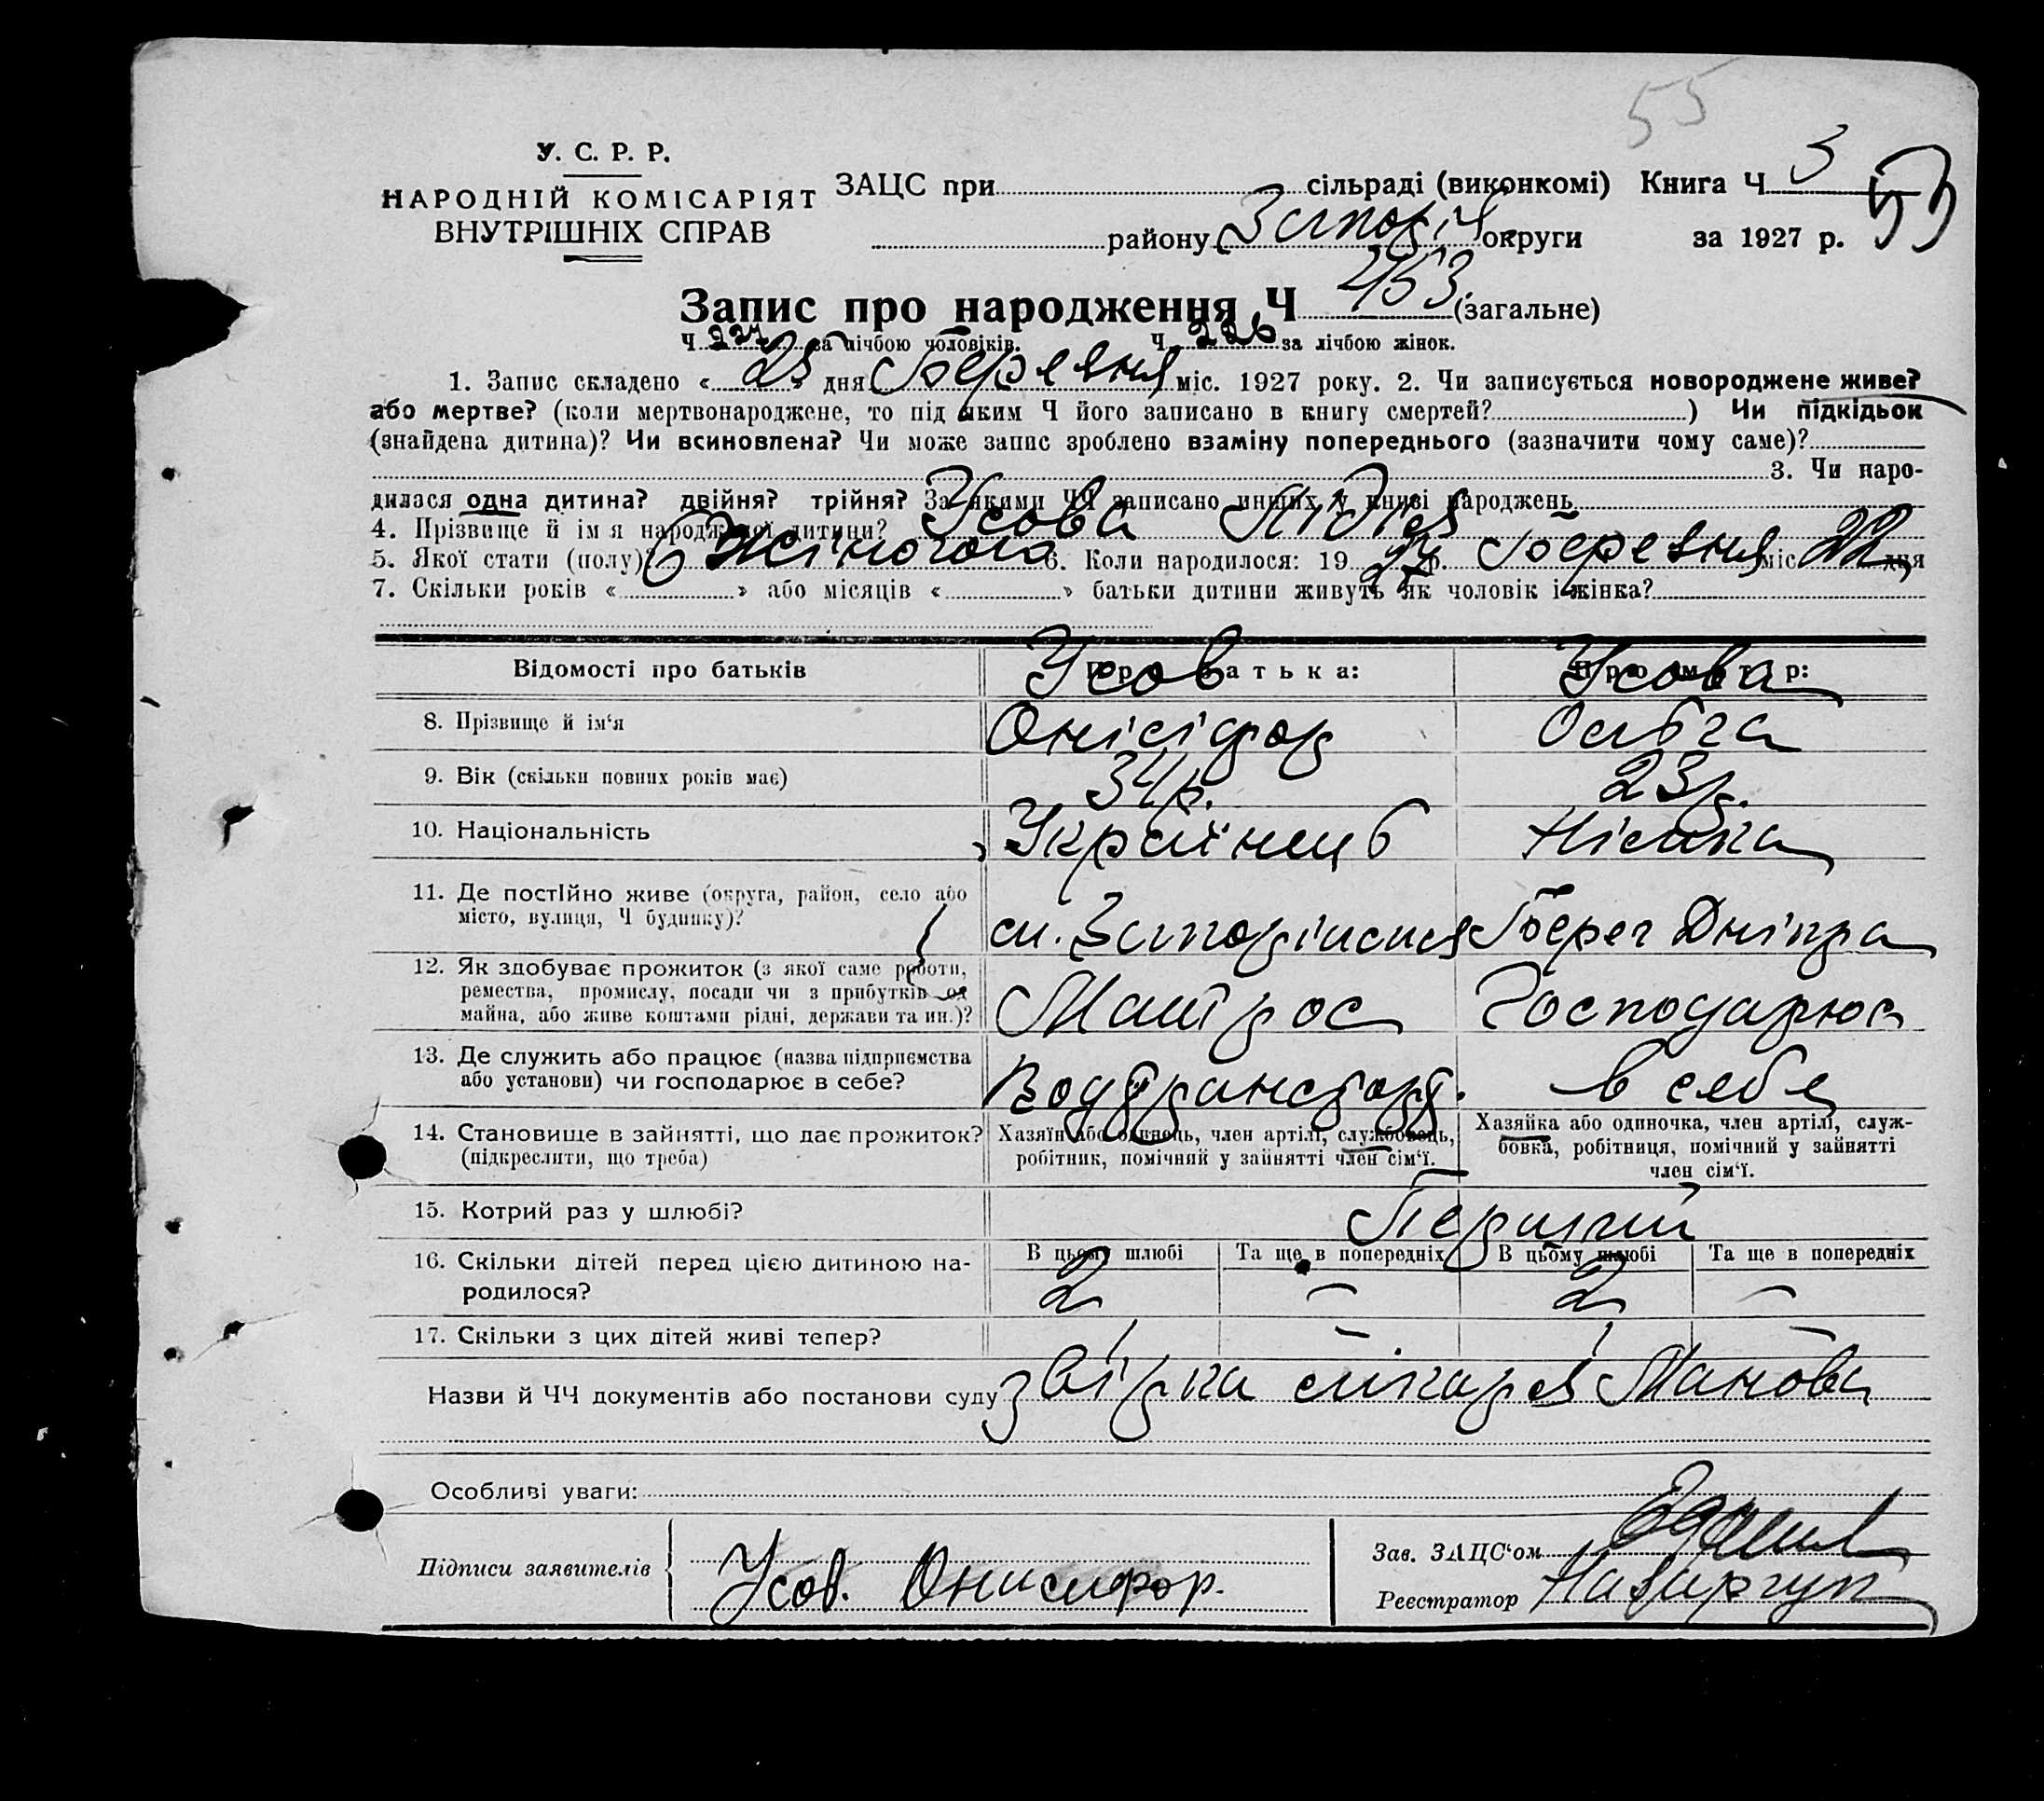 55
У. С. Р. Р.
НАРОДНІЙ КОМІСАРІЯТ
ВНУТРІШНІХ СПРАВ
ЗАЦС при сільраді (виконкомі) Книга Ч 3
53
району Запоріж. округи за 1927 р.
Запис про народження Ч 453 (загальне)
Ч 227 за лічбою чоловіків. Ч 226 за лічбою жінок.
1. Запис складено « 25 » дня Березня міс. 1927 року. 2. Чи записується новороджене живе?
або мертве? (коли мертвонароджене, то під яким Ч його записано в книгу смертей? ) Чи підкідьок
(знайдена дитина)? Чи всиновлена? Чи може запис зроблено взаміну попереднього (зазначити чому саме)?
3. Чи наро-
дилася одна дитина? двійня? трійня? За якими ЧЧ записано инших у книзі народжень
4. Прізвище й ім я народженої дитини? Усова Лідія
5. Якої стати (полу)? Жіночого 6. Коли народилося: 1927 р. Березня міс 22 дня
7. Скільки років « » або місяців « » батьки дитини живуть як чоловік і жінка?
Відомості про батьків Про батька: Про матір:
8. Прізвище й ім‘я Усов Онісіфор Усова Ольга
9. Вік (скільки повних років має) 34 р. 23 р.
10. Національність Українець Німка
11. Де постійно живе (округа, район, село або
місто, вулиця, Ч будинку)? м. Запоріжжя Берег Дніпра
12. Як здобуває прожиток (з якої саме роботи,
ремества, промислу, посади чи з прибутків од
майна, або живе коштами рідні, держави та ин.)? Матрос Господарює
13. Де служить або працює (назва підприємства
або установи) чи господарює в себе? Водтранспорт. в себе
14. Становище в зайнятті, що дає прожиток?
(підкреслити, що треба)
Хазяїн або одинець, член артілі, службовець,
робітник, помічний у зайнятті член сім‘ї.
Хазяйка або одиночка, член артілі, служ-
бовка, робітниця, помічний у зайнятті
член сім‘ї.
15. Котрий раз у шлюбі? Перший
16. Скільки дітей перед цією дитиною на-
родилося?
В цьому шлюбі Та ще в попередніх В цьому шлюбі Та ще в попередніх
2 – 2 –
17. Скільки з цих дітей живі тепер? 1 – 1 –
Назви й ЧЧ документів або постанови суду звірка лікаря
Особливі уваги:
Підписи заявителів Усов. Онисифор.
Зав. ЗАЦС‘ом
Реєстратор